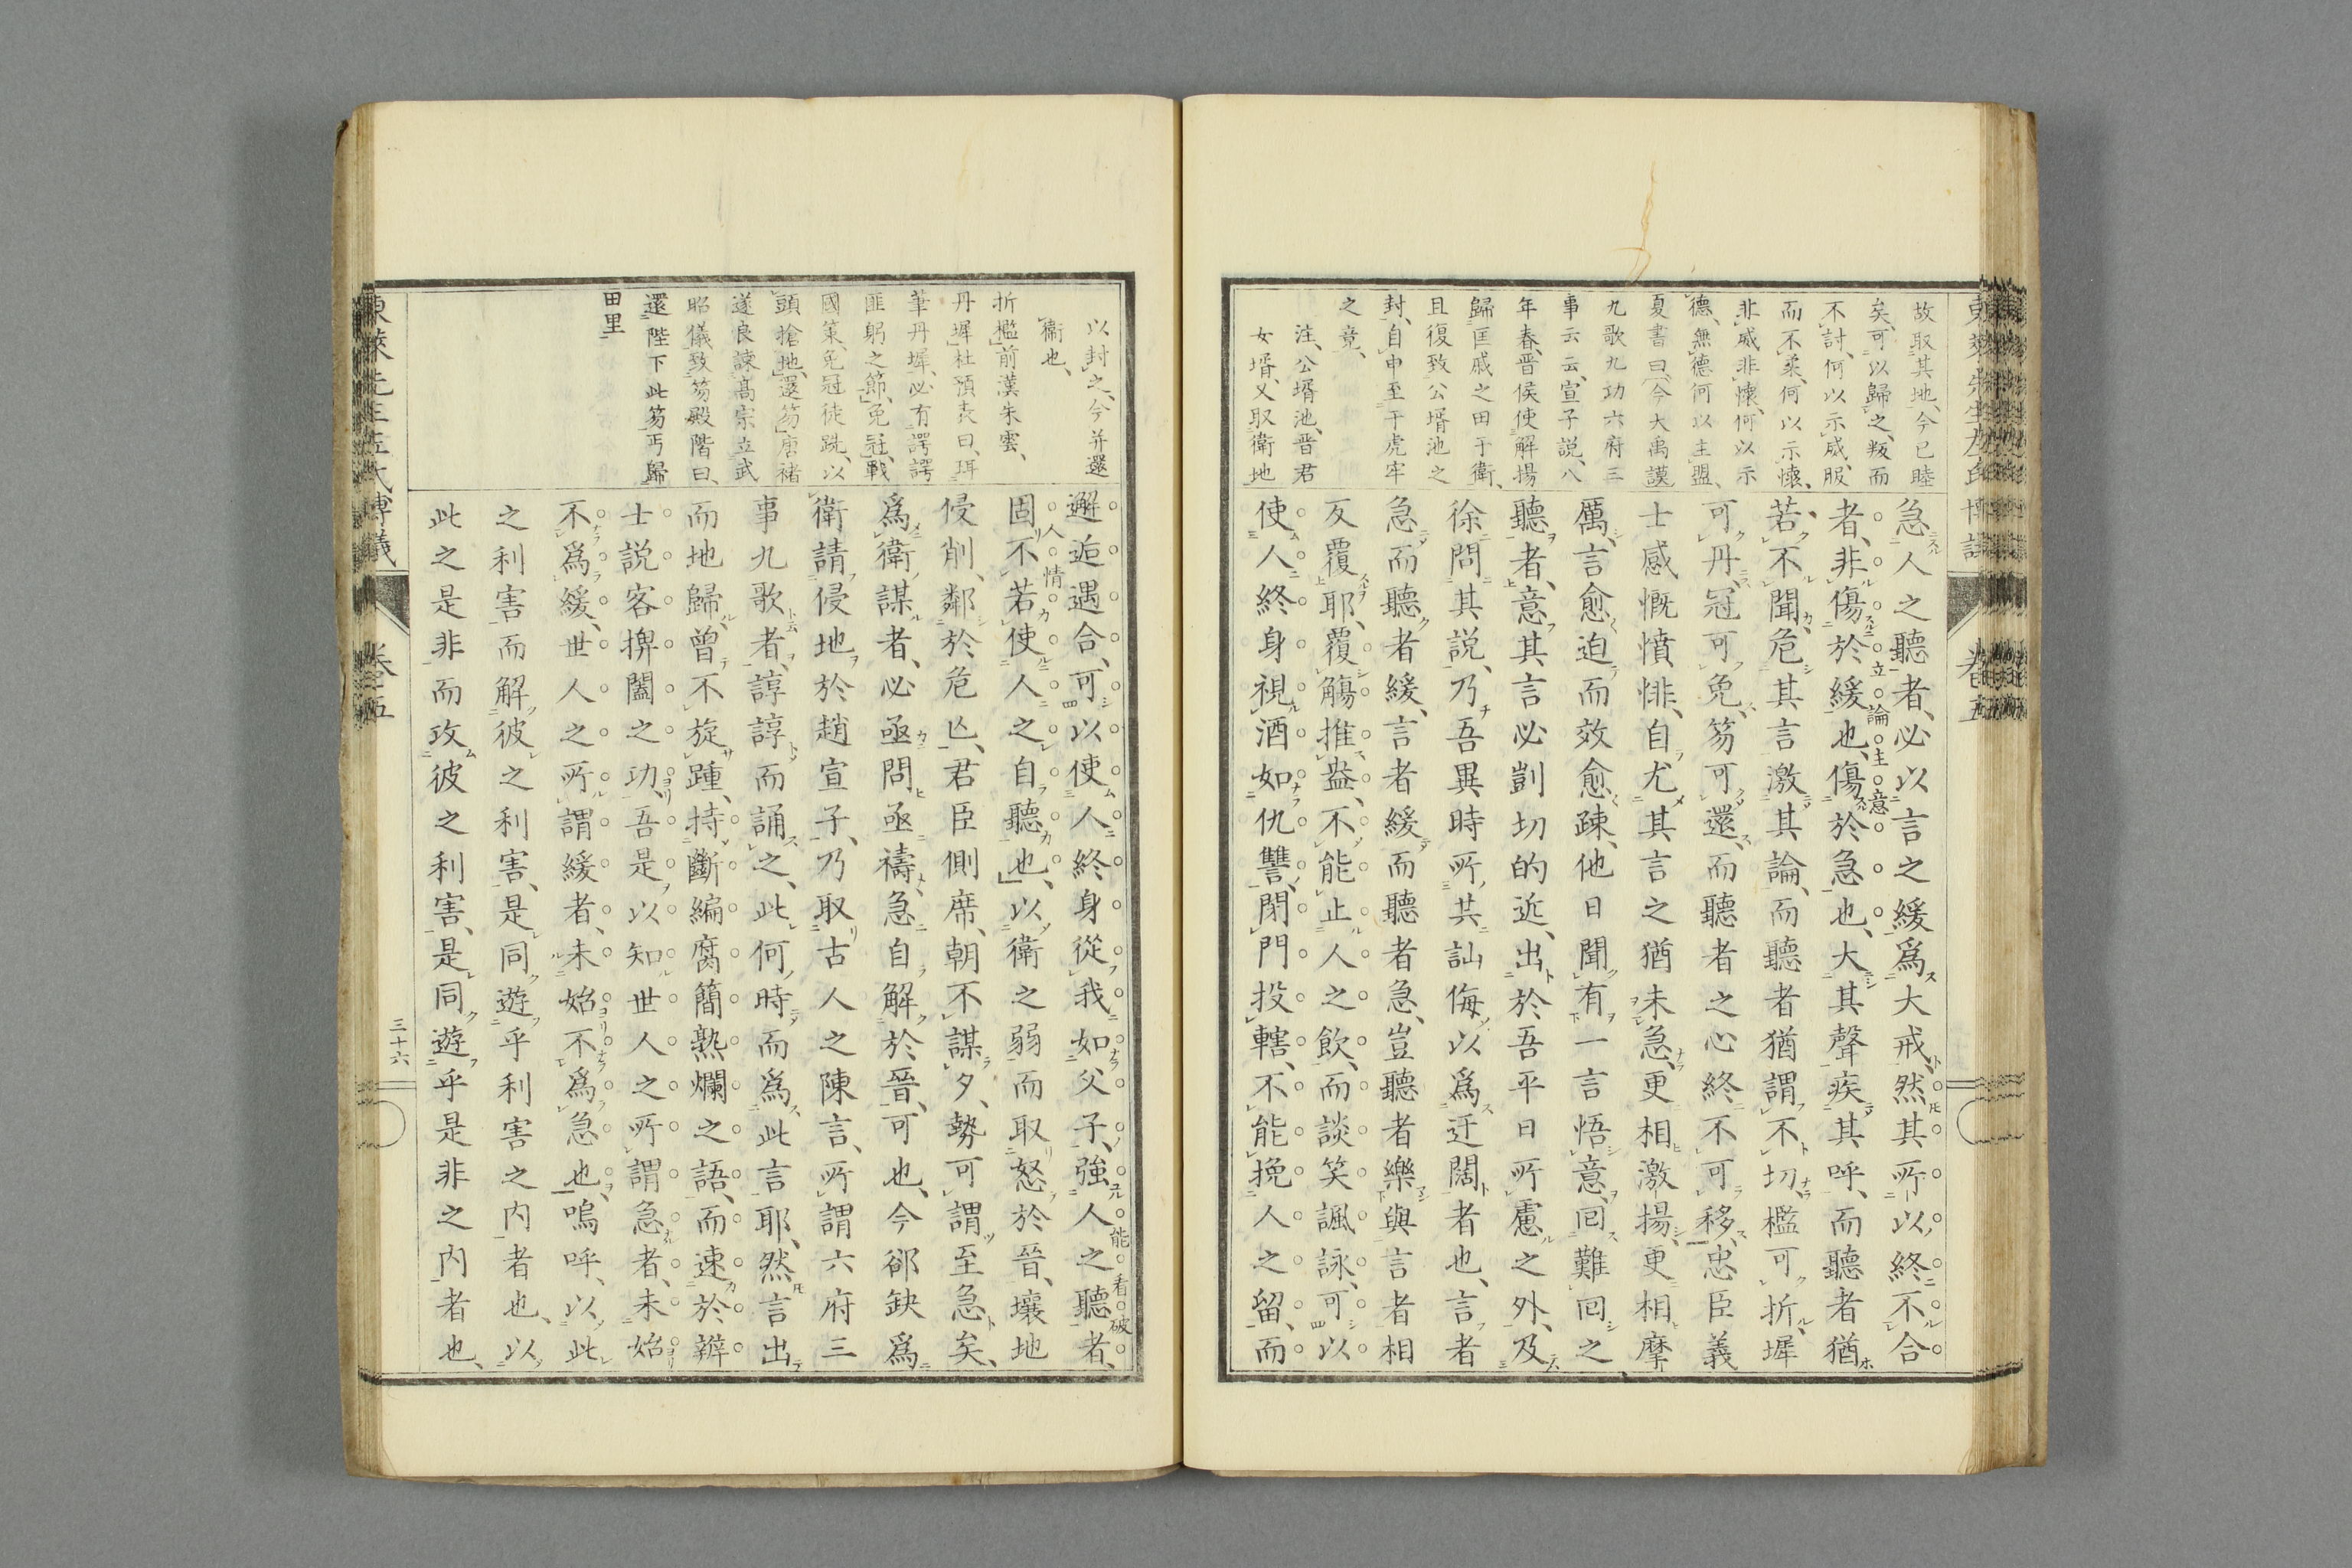 故取其地、今已睦
矣、可以歸之、叛而
不討、何以示威、服
而不柔、何以示懷、
非威非懷、何以示
德、無德何以主盟、
夏書曰、今大禹謨
九歌九功六府三
事云云、宣子説、八
年春、晋侯使解揚
歸匡戚之田于衛、
且復致公壻池之
封、自申至于虎牢
之竟、
注、公壻池、晋君
女壻、又取衛地
急人之聽者、必以言之緩爲大戒、然其所以終不合
者、非傷於緩也、傷於急也、大其聲疾其呼、而聽者猶
若不聞、危其言激其論、而聽者猶謂不切、檻可折、墀
可丹、冠可免、笏可還、而聽者之心終不可移、忠臣義
士感慨憤悱、自尤其言之猶未急、更相激揚、更相摩
厲、言愈迫而效愈疎、他日聞有一言悟意、回難回之
聽者、意其言必剴切的近、出於吾平日所慮之外、及
徐問其説、乃吾異時所共訕侮以爲迂闊者也、言者
急而聽者緩、言者緩而聽者急、豈聽者樂與言者相
反覆耶、覆觴推盎、不能止人之飲、而談笑諷詠、可以
使人終身視酒如仇讐、閉門投轄、不能挽人之留、而
立論主意
東萊先生左氏博議
卷五
以封之、今并還
衞也、
折檻、前漢朱雲、
丹墀、杜預表曰、珥
筆丹墀、必有諤諤
匪躬之節、免冠、戰
國策、免冠徒跣、以
頭搶地、還笏、唐褚
遂良諫高宗立武
昭儀、致笏殿階曰、
還陛下此笏、丐歸
田里
邂逅遇合、可以使人終身從我如父子、強人之聽者、
固不若使人之自聽也、以衛之弱而取怒於晉、壤地
侵削、鄰於危亾、君臣側席、朝不謀夕、勢可謂至急矣、
爲衛謀者、必亟問亟禱、急自解於晉、可也、今郤缺爲
衛請侵地於趙宣子、乃取古人之陳言、所謂六府三
事九歌者、諄諄而誦之、此何時而爲此言耶、然言出
而地歸、曾不旋踵、持斷編腐簡熟爛之語、而速於辯
士説客捭闔之功、吾是以知世人之所謂急者、未始
不爲緩、世人之所謂緩者、未始不爲急也、嗚呼、以此
之利害而解彼之利害、是同遊乎利害之内者也、以
此之是非而攻彼之利害、是同遊乎是非之内者也、
能看破
人情
東萊先生左氏博議
卷五
三十六